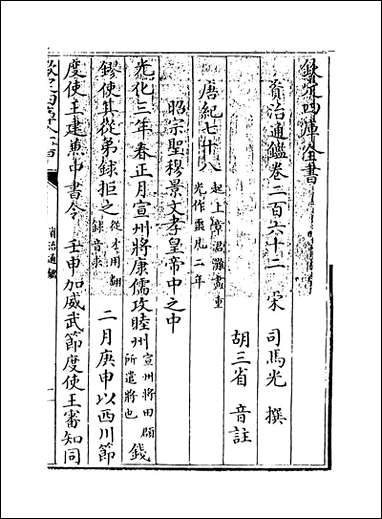 欽定四庫全書
資治通鑑卷二百六十二 宋 司馬光 撰
胡三省 音註
唐紀七十八 起上章涒灘盡重光作噩凡二年
昭宗聖穆景文孝皇帝中之中
光化三年春正月宣州將康儒攻睦州 宣州將田頵所遣將也 錢
鏐使其從弟銶拒之 從才用翻銶音求 二月庚申以西川節
度使王建兼中書令 壬申加威武節度使王審知同
資治通鑑